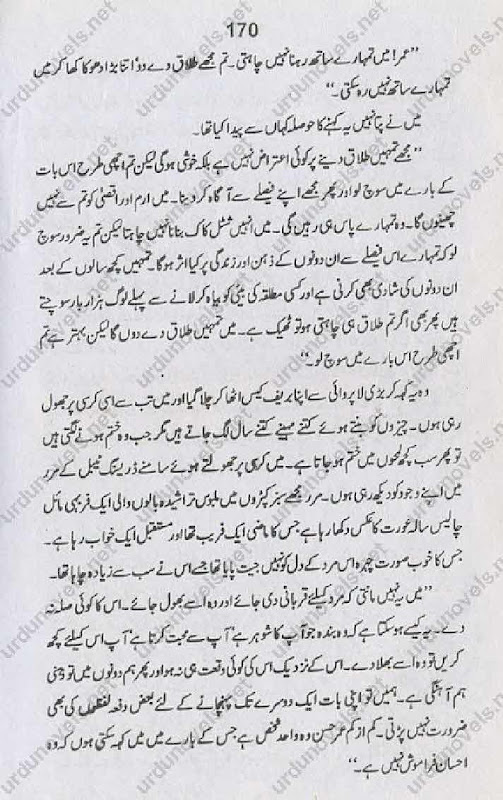 170
"عمر! میں تمہارے ساتھ رہنا نہیں چاہتی۔ تم مجھے طلاق دے دو' اتنا بڑا دھوکا کھا کر میں
تمہارے ساتھ نہیں رہ سکتی۔"
میں نے پتا نہیں یہ کہنے کا حوصلہ کہاں سے پیدا کیا تھا۔
"مجھے تمہیں طلاق دینے پر کوئی اعتراض نہیں ہے بلکہ خوشی ہوگی لیکن تم اچھی طرح اس بات
کے بارے میں سوچ لو اور پھر مجھے اپنے فیصلے سے آگاہ کر دینا۔ میں ارم اور اقصیٰ کو تم سے نہیں
چھینوں گا۔ وہ تمہارے پاس ہی رہیں گی۔ میں انہیں شٹل کاک بنانا نہیں چاہتا لیکن تم یہ ضرور سوچ
لو کہ تمہارے اس فیصلے سے ان دونوں کے ذہن اور زندگی پر کیا اثر ہوگا۔ تمہیں کچھ سالوں کے بعد
ان دونوں کی شادی بھی کرنی ہے اور کسی مطلقہ کی بیٹی کو بیاہ کر لانے سے پہلے لوگ ہزار بار سوچتے
ہیں پھر بھی اگر تم طلاق ہی چاہتی ہو تو ٹھیک ہے۔ میں تمہیں طلاق دے دوں گا لیکن بہتر ہے تم
اچھی طرح اس بارے میں سوچ لو۔"
وہ یہ کہہ کر بڑی لاپروائی سے اپنا بریف کیس اٹھا کر چلا گیا اور میں تب سے اسی کرسی پر جھول
رہی ہوں۔ چیزوں کو بنتے ہوئے کتنے مہینے کتنے سال لگ جاتے ہیں مگر جب وہ ختم ہونے لگتی ہیں
تو پھر سب کچھ لمحوں میں ختم ہو جاتا ہے۔ میں کرسی پر جھولتے ہوئے سامنے ڈریسنگ ٹیبل کے مرر
میں اپنے وجود کو دیکھ رہی ہوں۔ مرر مجھے سبز کپڑوں میں ملبوس تراشیدہ بالوں والی ایک فربہی مائل
چالیس سالہ عورت کا عکس دکھا رہا ہے جس کا ماضی ایک فریب تھا اور مستقبل ایک خواب رہا ہے۔
جس کا خوب صورت چہرہ اس مرد کے دل کو نہیں جیت پایا تھا جسے اس نے سب سے زیادہ چاہا تھا۔
"میں یہ نہیں مانتی کہ مرد کیلئے قربانی دی جائے اور وہ اسے بھول جائے۔ اس کا کوئی صلہ نہ
دے۔ یہ کیسے ہو سکتا ہے کہ وہ بندہ جو آپ کا شوہر ہے' آپ سے محبت کرتا ہے' آپ اس کیلئے کچھ
کریں تو وہ اسے بھلا دے۔ اس کے نزدیک اس کی کوئی وقعت ہی نہ ہو اور پھر ہم دونوں میں تو ذہنی
ہم آہنگی ہے۔ ہمیں تو اپنی بات ایک دوسرے تک پہنچانے کے لئے بعض دفعہ لفظوں کی بھی
ضرورت نہیں پڑتی۔ کم از کم عمر حسن وہ واحد شخص ہے جس کے بارے میں میں کہہ سکتی ہوں کہ وہ
احسان فراموش نہیں ہے۔"
urdunovels.net